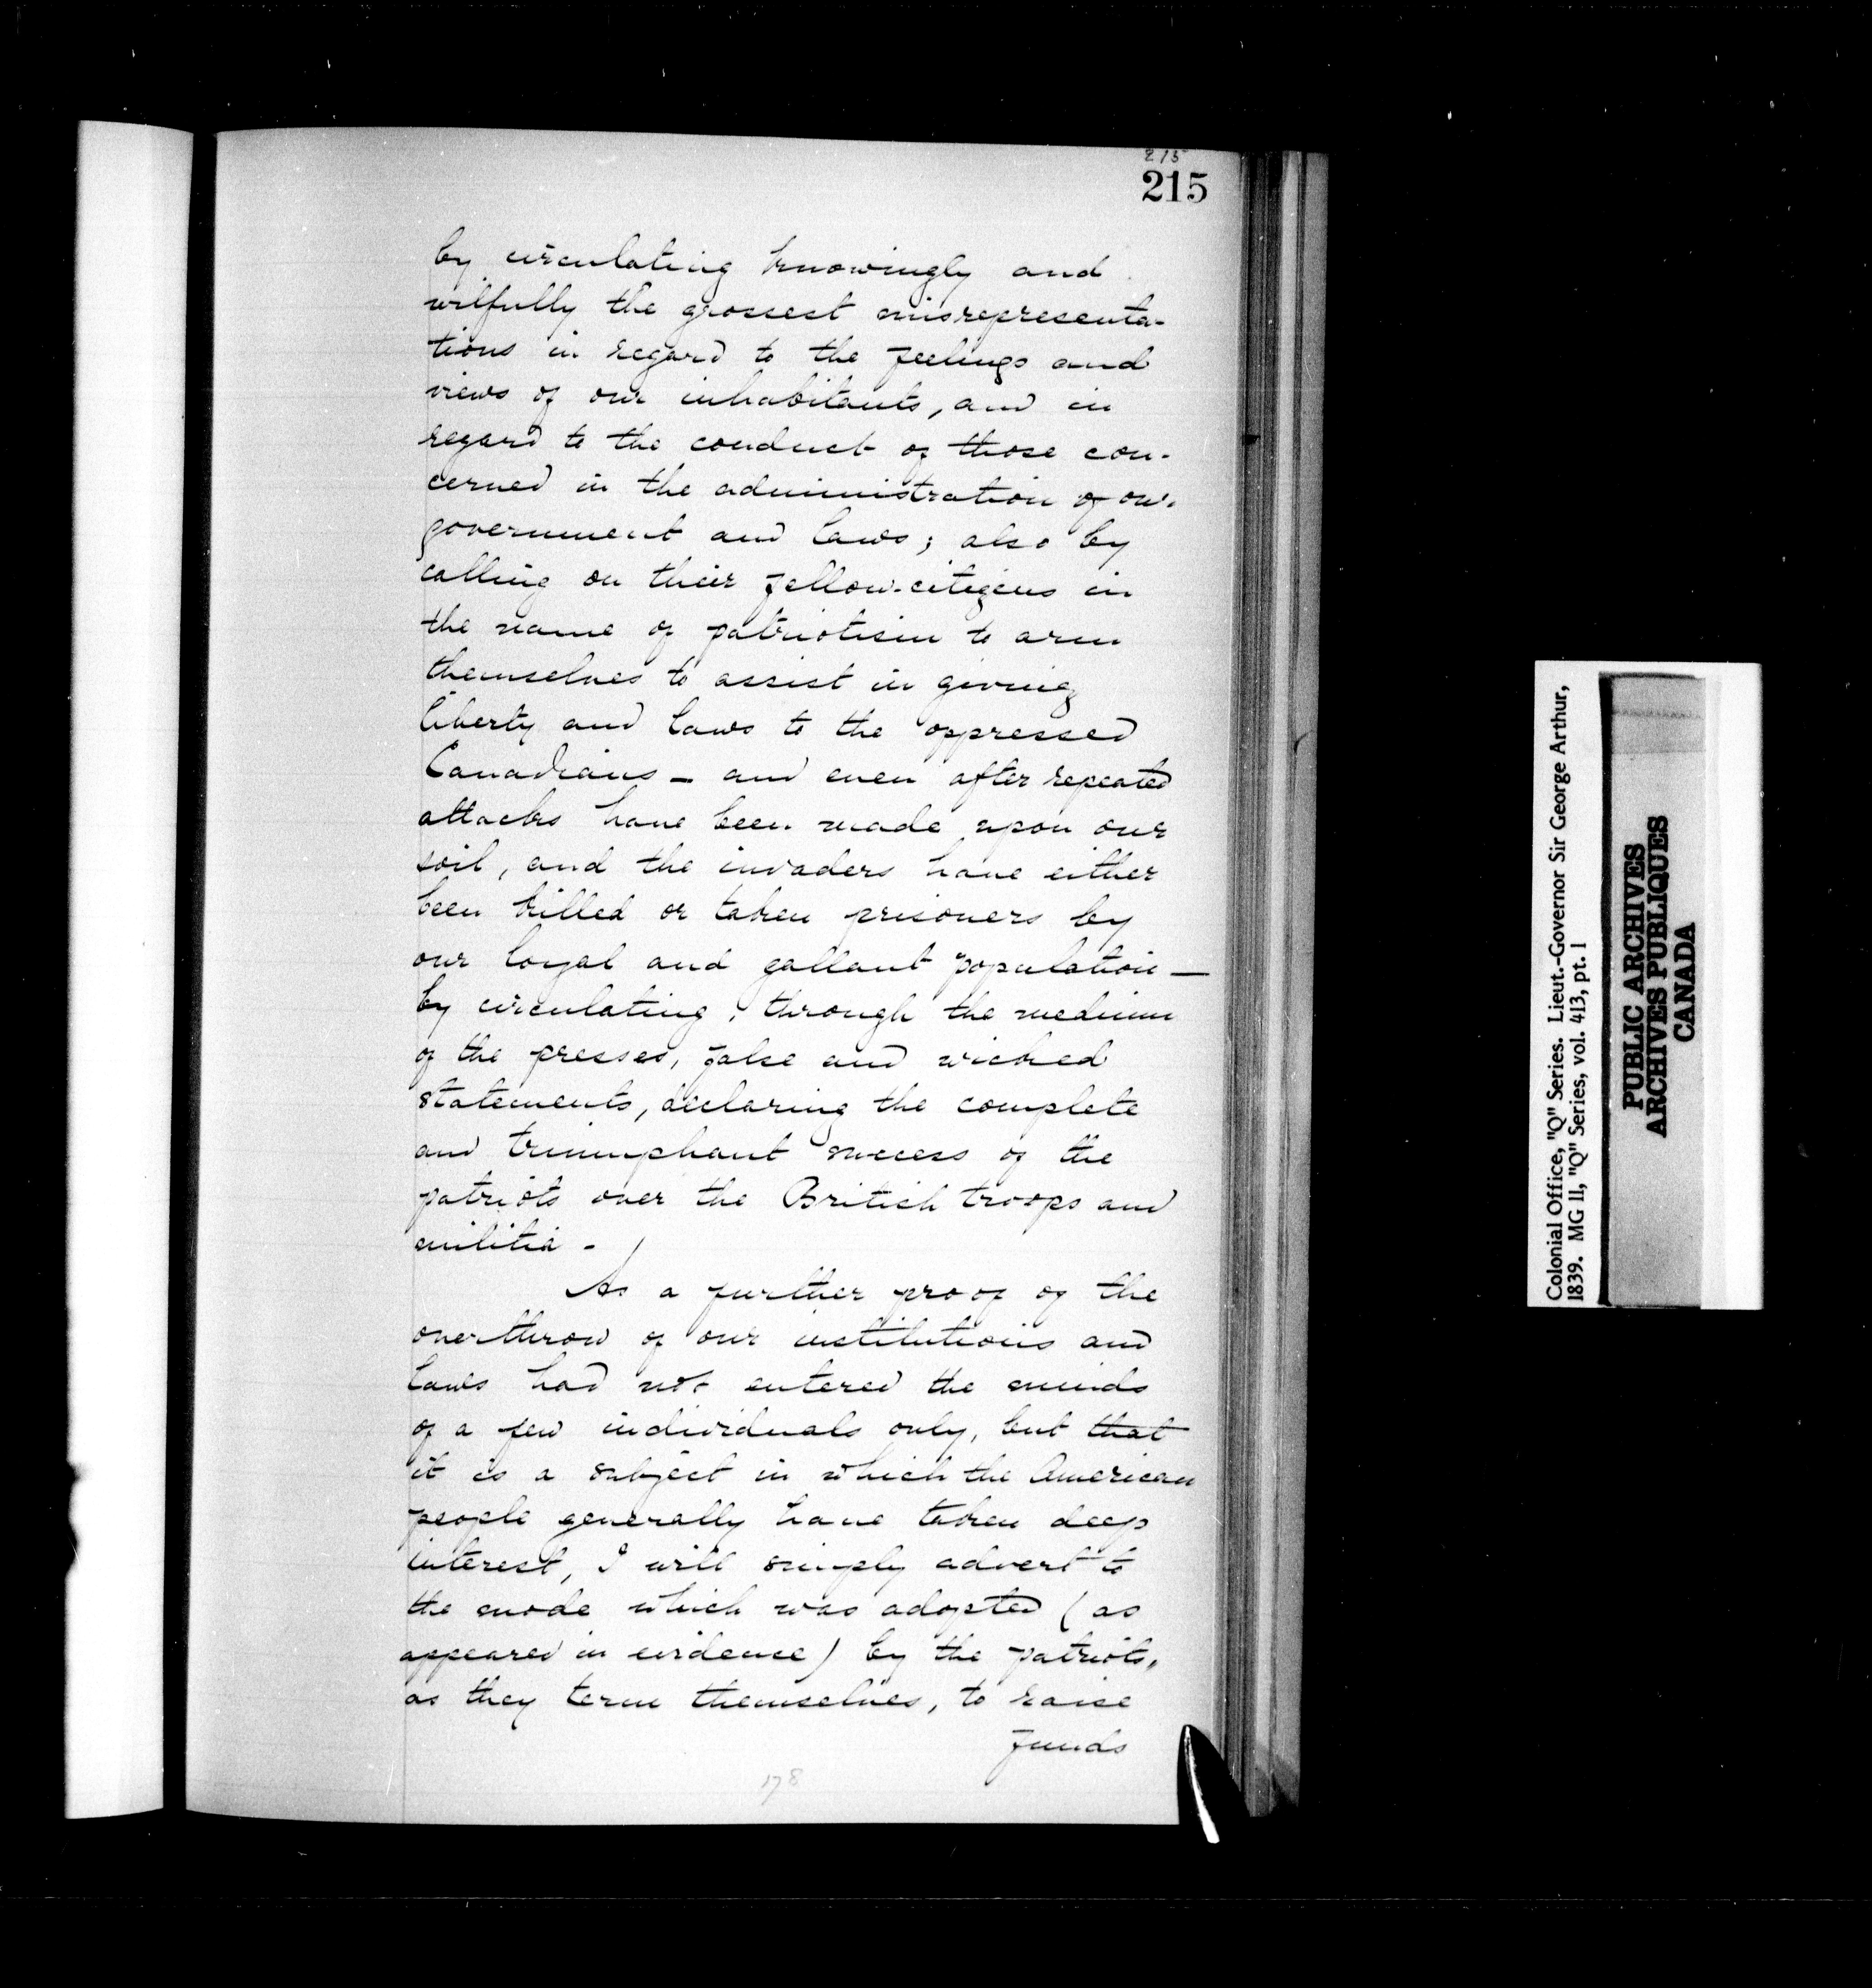 215
215
by circulating knowingly and
wilfully the grossest misrepresenta-
tions in regard to the feelings and
views of our inhabitants, and in
regard to the conduct of those con-
cerned in the administration of our
government and laws; also by
calling on their fellow-citizens in
the name of patriotism to arm
themselves to assist in giving
liberty and laws to the oppressed
Canadians - and even after repeated
attacks have been made upon our
soil, and the invaders have either
been killed or taken prisoners by
our loyal and gallant population —
by circulating, through the medium
of the presses, false and wicked
statements, declaring the complete
and triumphant success of the
patriots over the British troops and
militia -
As a further proof of the
overthrow of our institutions and
laws had not entered the minds
of a few individuals only, but that
it is a subject in which the American
people generally have taken deep
interest, I will simply advert to
the mode which was adopted (as
appeared in evidence) by the patriots,
as they term themselves, to raise
funds
178
Colonial Office, "Q" Series. Lieut.-Governor Sir George Arthur,
1839. MG 11, "Q" Series, vol. 413, pt. 1
PUBLIC ARCHIVES
ARCHIVES PUBLIQUES
CANADA